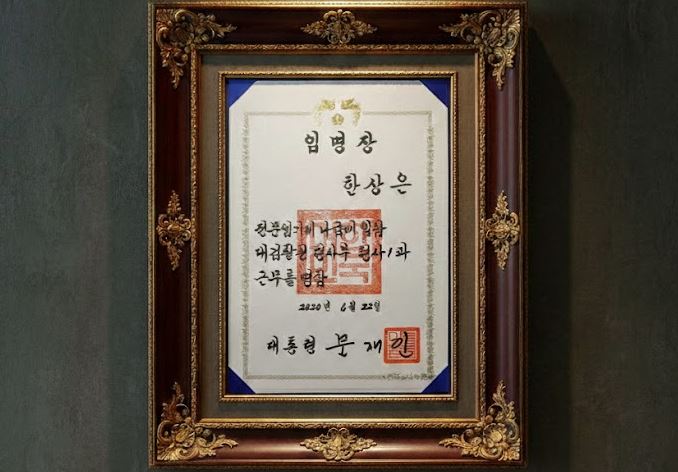 임명장
한상은
전문임기제 나급에 임함
대검찰청 형사부 형사1과
근무를 명함
2020년 6월 22일
대통령 문재인